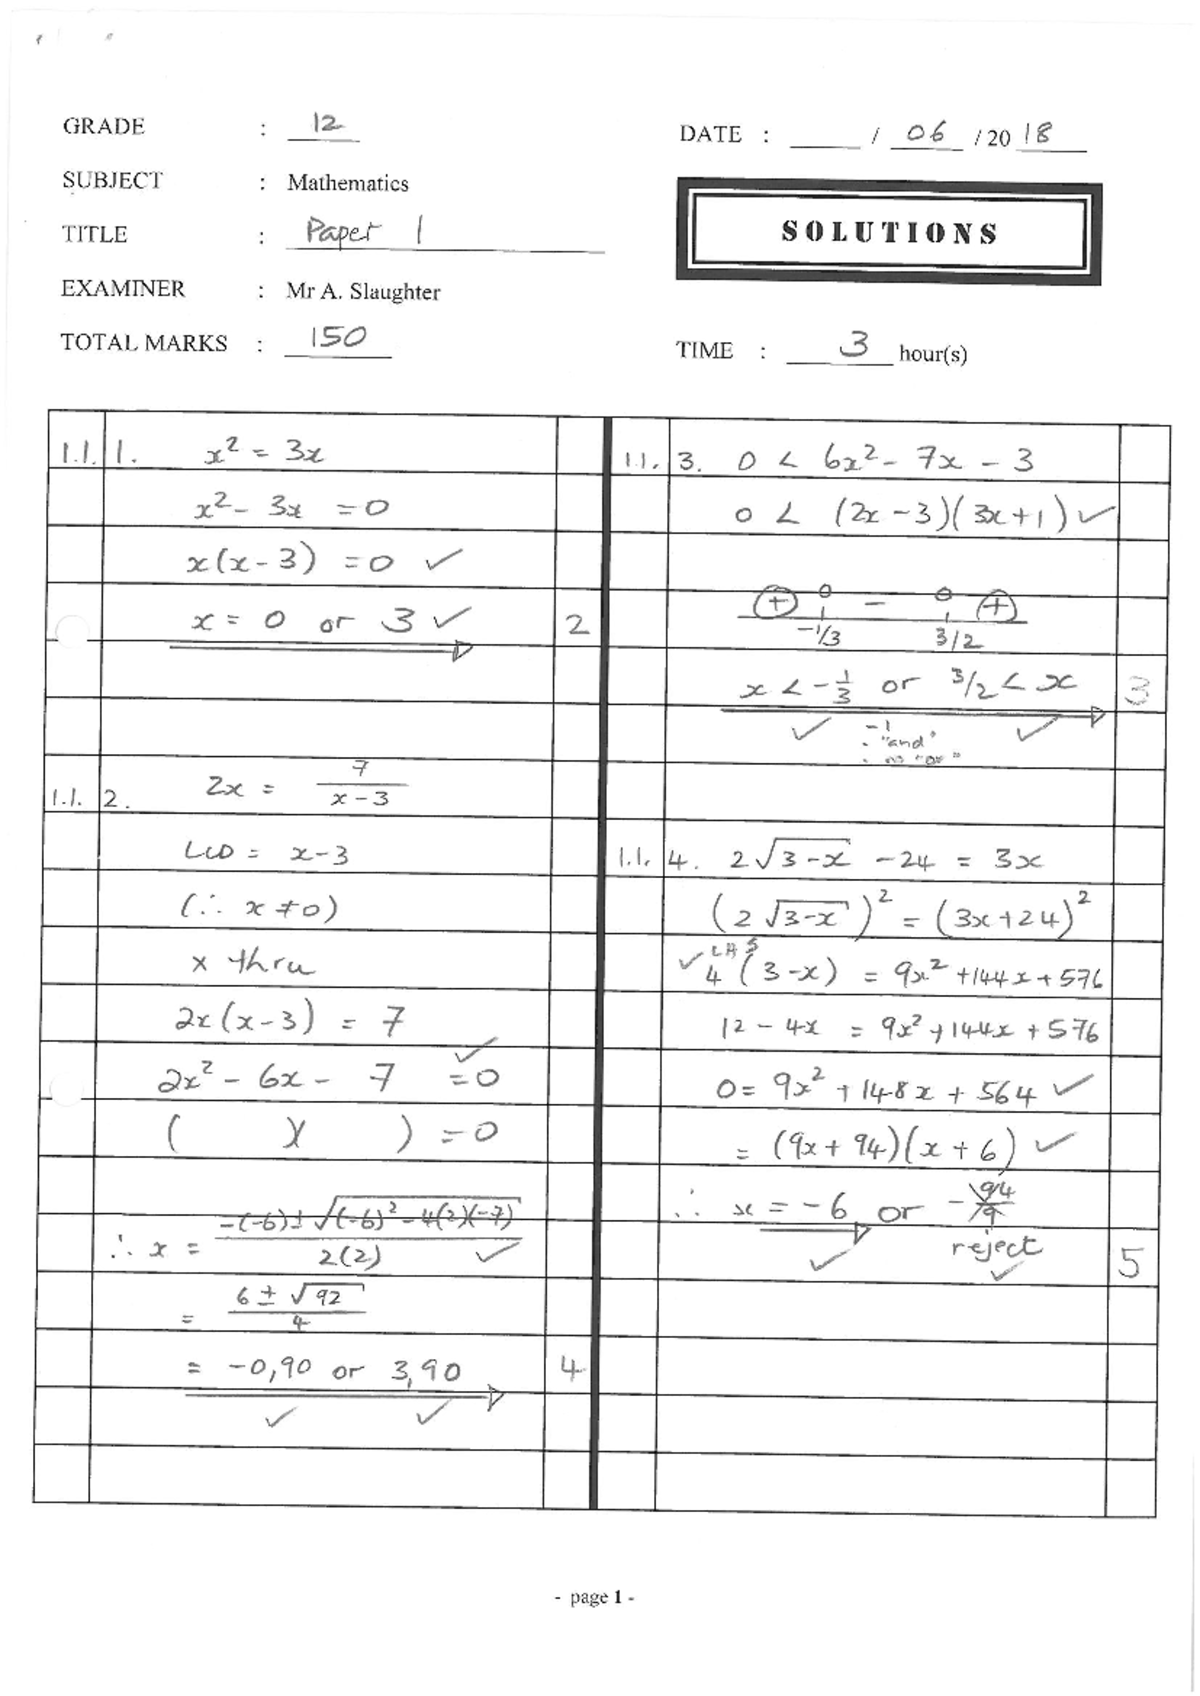 GRADE : 12
DATE : ____ / 06 / 20 18
SUBJECT : Mathematics
SOLUTIONS
TITLE : Paper 1
EXAMINER : Mr A. Slaughter
TOTAL MARKS : 150
TIME : 3 hour(s)
1.1. 1. x² = 3x
x² - 3x = 0
x(x - 3) = 0 ✓
x = 0 or 3 ✓ 2
1.1. 2. 2x = 7/(x - 3)
LCD = x - 3
(∴ x ≠ 0)
x thru
2x(x - 3) = 7
✓
2x² - 6x - 7 = 0
( )( ) = 0
∴ x = (-(-6) ± √((-6)² - 4(2)(-7)))/2(2) ✓
= (6 ± √92)/4
= -0,90 or 3,90 4
✓ ✓
1.1. 3. 0 < 6x² - 7x - 3
0 < (2x - 3)(3x + 1) ✓
+ 0 - 0 +
-1/3 3/2
x < -1/3 or 3/2 < x 3
✓ -1 ✓
. "and"
. no "or"
1.1. 4. 2√(3-x) - 24 = 3x
(2√(3-x))² = (3x + 24)²
LHS
✓ 4(3 - x) = 9x² + 144x + 576
12 - 4x = 9x² + 144x + 576
0 = 9x² + 148x + 564 ✓
= (9x + 94)(x + 6) ✓
∴ x = -6 or -94/9
✓ reject 5
✓
- page 1 -